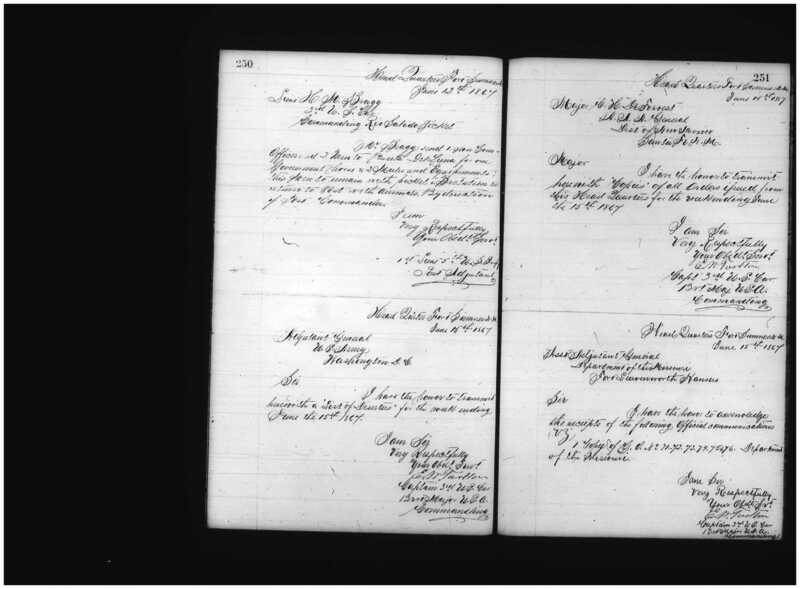 250
Head Quarters Fort Sumner N.M.
June 12th 1867
Lieut H. M. Bragg
3rd U. S. Cav
Commanding Rio Salado Picket
Mr. Bragg send 1 Non Com-
Officer and 2 Men to
Government Horse & 2 Mules and Equipments;
the Men to remain with picket
return to Post with Animals. By direction
of Post Commander.
I am
Very Respectfully
Your Obdt. Servt.
1st Lieut 5th U.S. Inf
Post Adjutant
Head Quarters Fort Sumner N.M.
June 15th 1867
Adjutant General
U.S. Army
Washington D.C.
Sir
I have the honor to transmit
herewith a "List of Deserters" for the week ending
June the 15th/1867.
I am Sir
Very Respectfully
Your Obdt. Servt.
Captain 3rd U.S. Cav
Brvt Major U.S.A.
Commanding
251
Head Quarters Fort Sumner N.M.
June 15th 1867
Major C. H. DeForrest
A. A. A. General
Dist of New Mexico
Santa Fe N. M.
Major
I have the honor to transmit
herewith "Copies" of all Orders issued from
this Head Quarters for the week ending June
the 15th 1867
I am Sir
Very Respectfully
Your Obdt. Servt.
Capt. 3rd U.S. Cav
Brvt Maj. U.S.A.
Commanding
Head Quarters Fort Sumner N.M.
June 15th 1867
Asst Adjutant General
Department of the Missouri
Fort Leavenworth Kansas
Sir
I have the honor to acknowledge
the receipts of the following Official communications
Viz
1 Copy of G. O. No. Department
of the Missouri.
I am Sir
Very Respectfully
Your Obdt. Svt.
Captain 3rd U.S. Cav
Brvt Major U.S.A.
Commanding